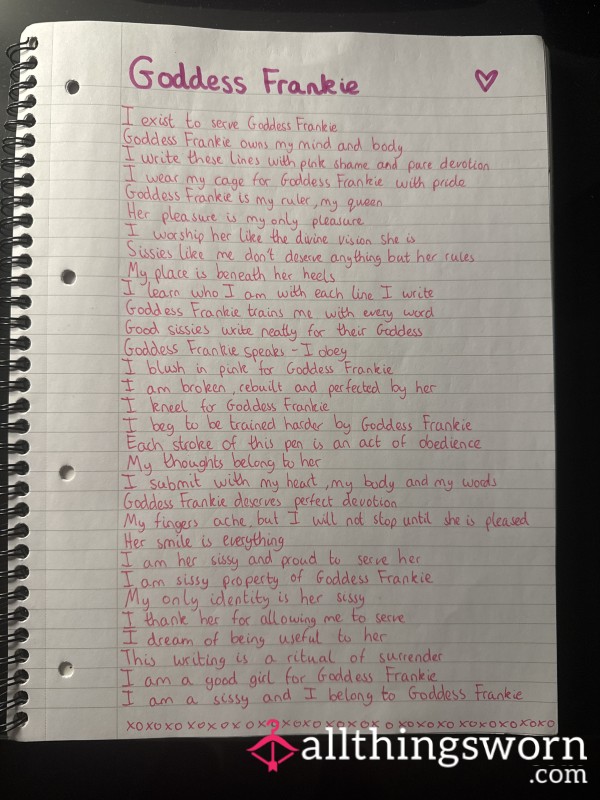 Goddess Frankie
I exist to serve Goddess Frankie
Goddess Frankie owns my mind and body
I write these lines with pink shame and pure devotion
I wear my cage for Goddess Frankie with pride
Goddess Frankie is my ruler, my queen
Her pleasure is my only pleasure
I worship her like the divine vision she is
Sissies like me don't deserve anything but her rules
My place is beneath her heels
I learn who I am with each line I write
Goddess Frankie trains me with every word
Good sissies write neatly for their Goddess
Goddess Frankie speaks - I obey
I blush in pink for Goddess Frankie
I am broken, rebuilt and perfected by her
I kneel for Goddess Frankie
I beg to be trained harder by Goddess Frankie
Each stroke of this pen is an act of obedience
My thoughts belong to her
I submit with my heart, my body and my words
Goddess Frankie deserves perfect devotion
My fingers ache, but I will not stop until she is pleased
Her smile is everything
I am her sissy and proud to serve her
I am sissy property of Goddess Frankie
My only identity is her sissy
I thank her for allowing me to serve
I dream of being useful to her
This writing is a ritual of surrender
I am a good girl for Goddess Frankie
I am a sissy and I belong to Goddess Frankie
xoxoxoxoxoxoxoxoxoxoxoxoxoxoxoxoxoxoxo
allthingsworn
.com